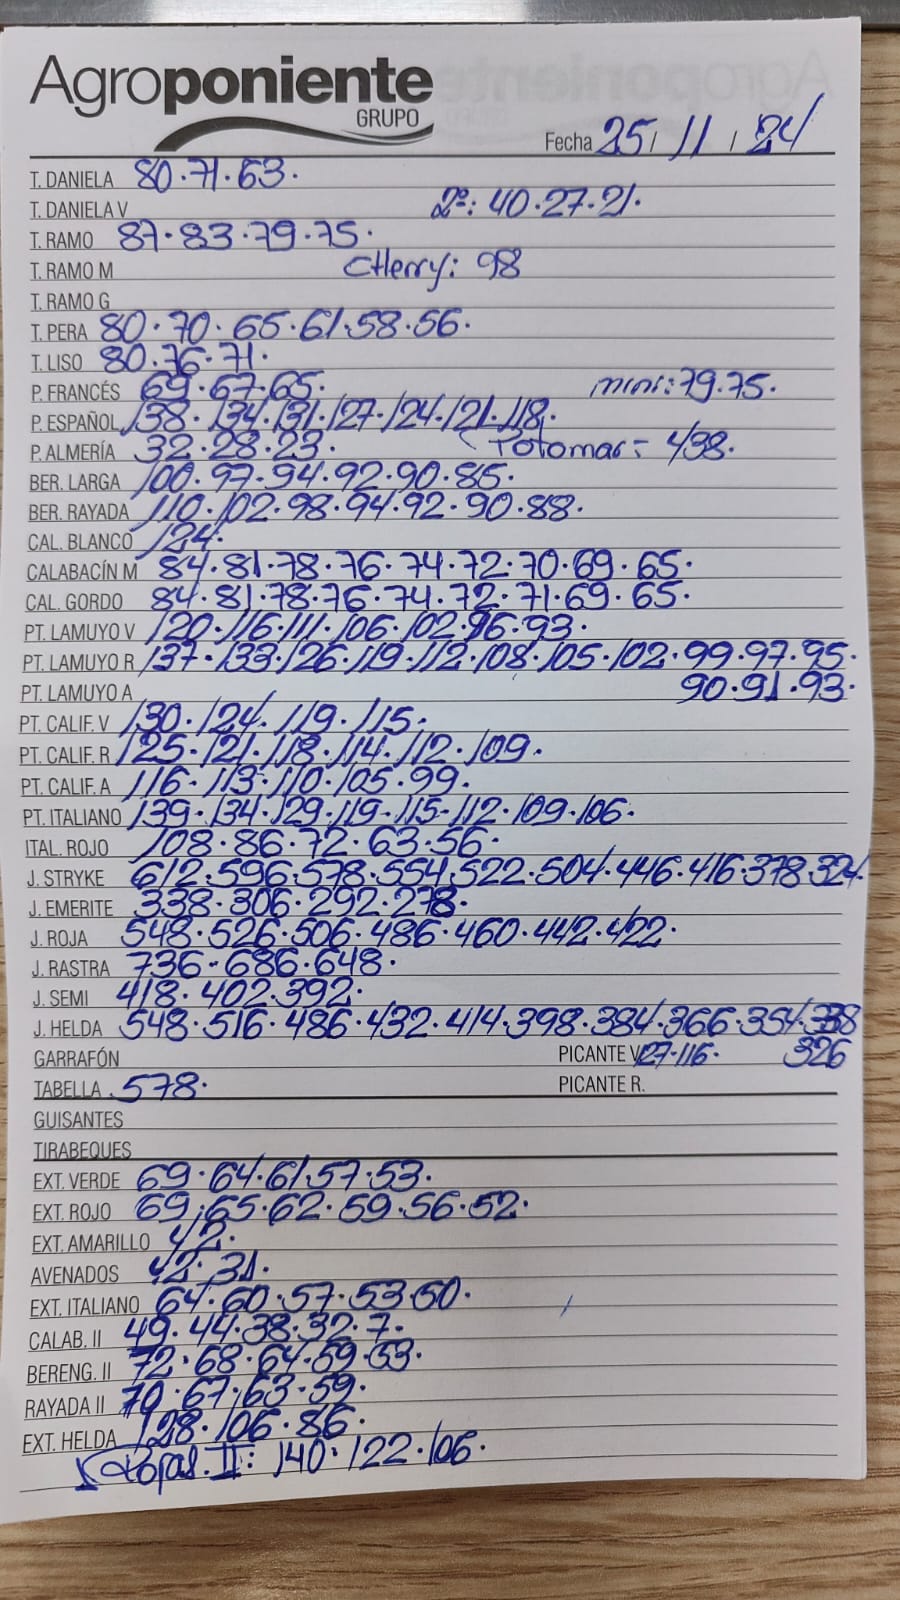 Agroponiente
GRUPO
Fecha 25 / 11 / 24
T. DANIELA 80.71.63.
T. DANELA V 2ª: 40.27.21.
T. RAMO 87.83.79.75.
T. RAMO M CHerry: 98
T. RAMO G
T. PERA 80.70.65.61.58.56.
T. LISO 80.76.71.
P. FRANCÉS 69.67.65. mini: 79.75.
P. ESPAÑOL 138.134.131.127.124.121.118.
P. ALMERÍA 32.28.23. Potomac = 4/38.
BER. LARGA 100.97.94.92.90.85.
BER. RAYADA 110.102.98.94.92.90.88.
CAL. BLANCO 124.
CALABACÍN M 84.81.78.76.74.72.70.69.65.
CAL. GORDO 84.81.78.76.74.72.71.69.65.
PT. LAMUYO V 120.116.111.106.102.96.93.
PT. LAMUYO R 137.133.126.119.112.108.105.102.99.97.95.
PT. LAMUYO A 90.91.93.
PT. CALIF. V 130.124.119.115.
PT. CALIF. R 125.121.118.114.112.109.
PT. CALIF. A 116.113.110.105.99.
PT. ITALIANO 139.134.129.119.115.112.109.106.
ITAL. ROJO 108.86.72.63.56.
J. STRYKE 612.596.578.554.522.504.446.416.378.324.
J. EMERITE 338.306.292.278.
J. ROJA 548.526.506.486.460.442.422.
J. RASTRA 736.686.648.
J. SEMI 418.402.392.
J. HELDA 548.516.486.432.414.398.384.366.354.338
GARRAFÓN PICANTE V 127.116. 326
TABELLA 578. PICANTE R.
GUISANTES
TIRABEQUES
EXT. VERDE 69.64.61.57.53.
EXT. ROJO 69.65.62.59.56.52.
EXT. AMARILLO 42.
AVENADOS 42.31.
EXT. ITALIANO 64.60.57.53.50.
CALAB. II 49.44.38.32.7.
BERENG. II 72.68.64.59.53.
RAYADA II 70.67.63.59.
EXT. HELDA 128.106.86.
Rojas. II: 140.122.106.